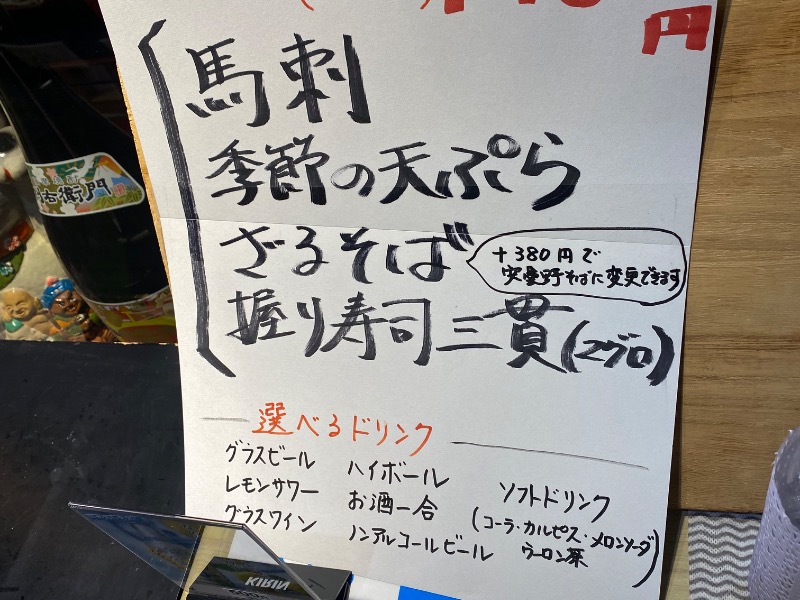 円
馬刺
季節の天ぷら
ざるそば
+380円で
安曇野そばに変更できます
握り寿司三貫(マグロ)
選べるドリンク
グラスビール
レモンサワー
グラスワイン
ハイボール
お酒一合
ノンアルコールビール
ソフトドリンク
(コーラ・カルピス・メロンソーダ
ウーロン茶)
右衛門
KIRIN